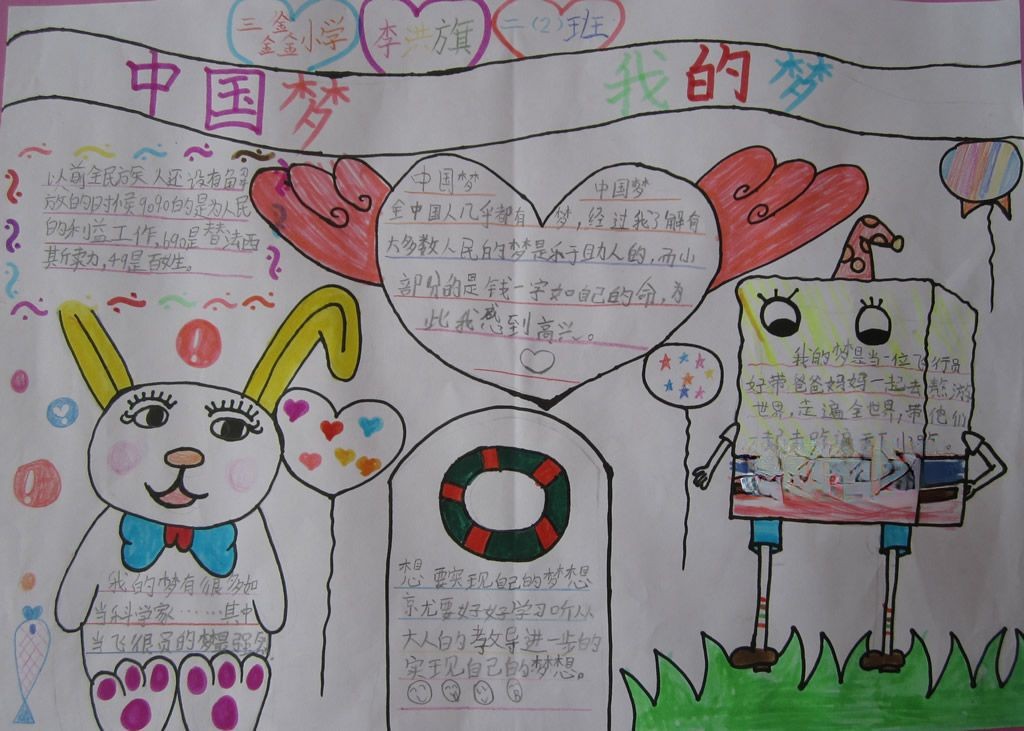 三鑫鑫小学
李洪旗
二(2)班
中国梦
我的梦
以前全民族人还没有解
放的时候90%的是为人民
的利益工作,6%是替法西
斯卖力,4%是百姓。
中国梦 中国梦
全中国人几乎都有一梦,经过我了解有
大多数人民的梦是乐于助人的,而小
部份的是钱一字如自己的命,为
此我感到高兴。
我的梦是当一位飞行员
好带爸爸妈妈一起去熬游
世界,走遍全世界,带他们
一起去吃遍 小吃。
我的梦有很多如
当科学家……其中
当飞很员的梦最强
想要实现自己的梦想
京尤要好好学习听从
大人的孝攵导进一步的
实现自己的梦想。